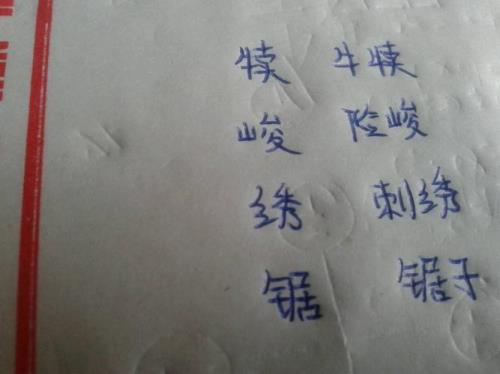 犊 牛犊
峻 险峻
绣 刺绣
锯 锯子